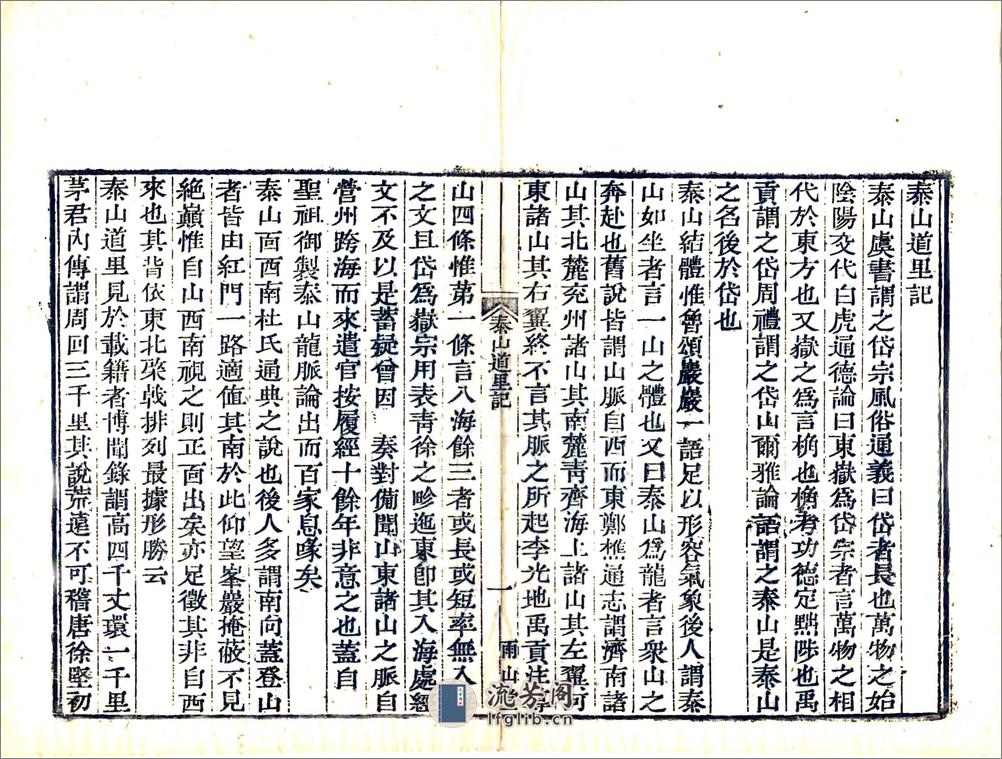 泰山道里記
泰山虞書謂之岱宗風俗通義曰岱者長也萬物之始
陰陽交代白虎通德論曰東嶽爲岱宗者言萬物之相
代於東方也又嶽之爲言桷也桷考功德定黜陟也禹
貢謂之岱周禮謂之岱山爾雅論語謂之泰山是泰山
之名後於岱也
泰山結體惟魯頌巖巖一語足以形容氣象後人謂泰
山如坐者言一山之體也又曰泰山爲龍者言衆山之
奔赴也舊說皆謂山脈自西而東鄭樵通志謂濟南諸
山其北麓兖州諸山其南麓靑齊海上諸山其左翼河
東諸山其右翼終不言其脈之所起李光地禹貢注
泰山道里記
一
雨山
山四條惟第一條言入海餘三者或長或短率無入
之文且岱爲嶽宗用表靑徐之畛迤東卽其入海處經
文不及以是蓄疑曾因 奏對備聞山東諸山之脈自
營州跨海而來遣官按履經十餘年非意之也蓋自
聖祖御製泰山龍脈論出而百家息喙矣
泰山面西南杜氏通典之說也後人多謂南向蓋登山
者皆由紅門一路適值其南於此仰望峯巖掩蔽不見
絕巔惟自山西南視之則正面出矣亦足徵其非自西
來也其背依東北棨戟排列最據形勝云
泰山道里見於載籍者博聞錄謂高四千丈環一千里
茅君內傳謂周回三千里其說荒遠不可稽唐徐堅初
流芳閣
lfglib.cn